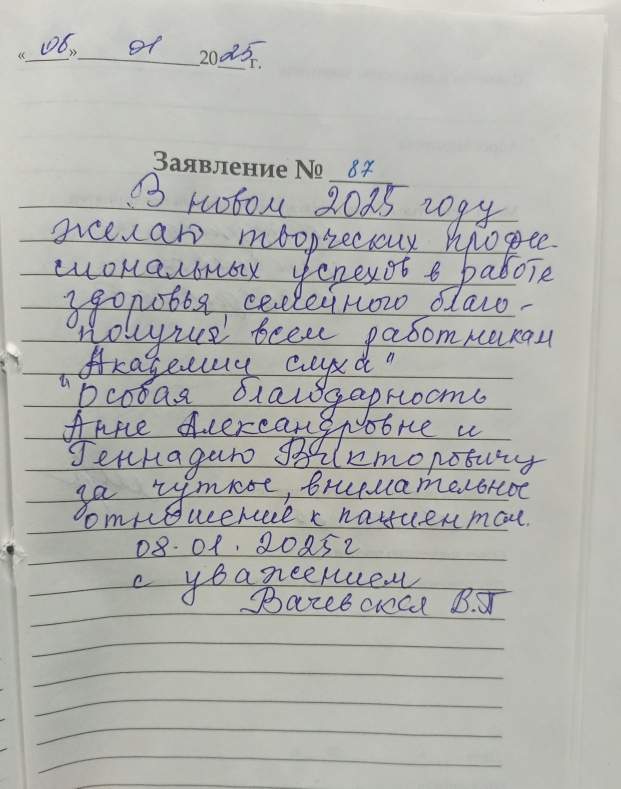 «06» 01 2025 г.
Заявление № 87
В новом 2025 году
желаю творческих профес-
сиональных успехов в работе
здоровья, семейного благо-
получия всем работникам
"Академии слуха"
Особая благодарность
Анне Александровне и
Геннадию Викторовичу
за чуткое, внимательное
отношение к пациентам.
08.01.2025г
с уважением
В.П